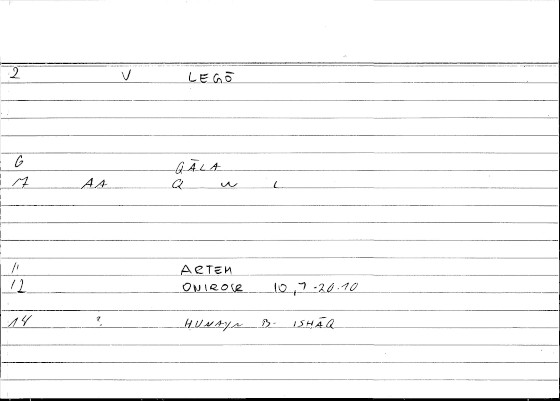 2 V LEGŌ
6 QĀLA
7 AA Q W L
11 ARTEM
12 ONIROCR 10,7-20.10
14 ?. HUNAYN B. ISHĀQ